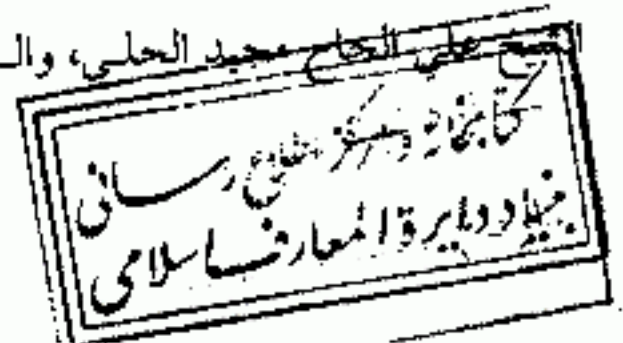 الشيخ علي الحاج مجيد الحلي، وال
کتابخانه و مرکز اطلاع رسانی
بنیاد دایرة المعارف اسلامی